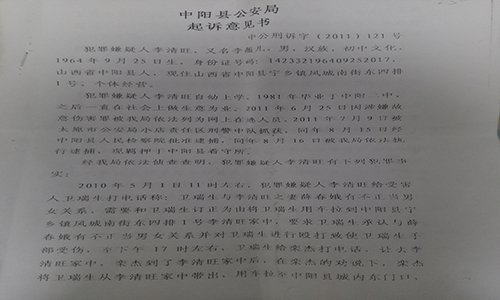 中阳县公安局
起诉意见书
中公刑诉字（2011）121号
犯罪嫌疑人李清旺，又名李 儿，男，汉族，初中文化，
1964年9月25日生，身份证号码：142332196409252017，
山西省中阳县人，现住山西省中阳县宁乡镇凤城南街东四排
1号，个体经营。
犯罪嫌疑人李清旺自幼上学，1981年毕业于中阳二中，
之后一直在社会上做生意为业，2011年6月25日因涉嫌故
意伤害罪被我局依法列为网上在逃人员，2011年7月9日被
太原市公安局小店责任区刑警中队抓获，同年8月15日经
中阳县人民检察院批准逮捕，同年8月16日被我局依法执
行逮捕，现羁押于中阳县看守所。
经我局依法侦查查明，犯罪嫌疑人李清旺有下列犯罪事
实：
2010年5月1日11时左右，犯罪嫌疑人李清旺给受害
人卫瑞生打电话称：卫瑞生与李清旺之妻薛春娥有不正当男
女关系，需要和卫瑞生订正为由将卫瑞生用车拉到中阳县宁
乡镇凤城南街东四排1号李清旺家中，要求卫瑞生承认与薛
春娥有不正当男女关系并对卫瑞生进行殴打致使卫瑞生了
部受伤，至下午17时左右，卫瑞生给栾杰打电话，让去李
清旺家中，栾杰到了李清旺家中后，在栾杰的劝说下，栾杰
将卫瑞生从李清旺家中带出，用车拉至中阳县城内东门口，